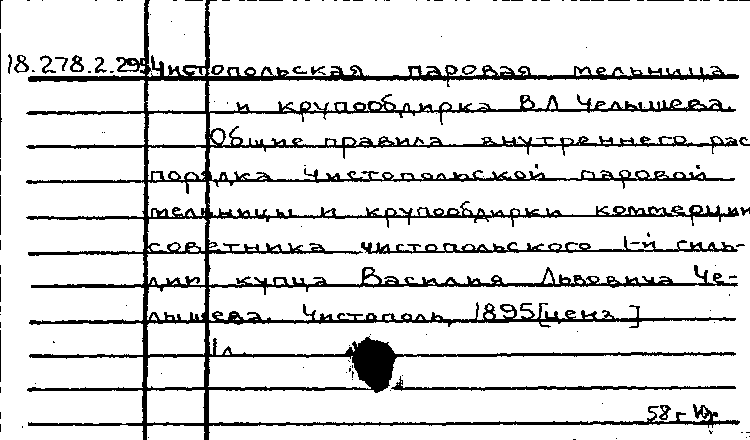 18.278.2.295 Чистопольская паровая мельница
и крупообдирка В.Л. Челышева.
Общие правила внутреннего рас
порядка Чистопольской паровой
мельницы и крупообдирки коммерции
советника чистопольского 1-й гиль-
дии купца Василия Львовича Че-
лышева. Чистополь, 1895 [ценз.]
1л.
58г